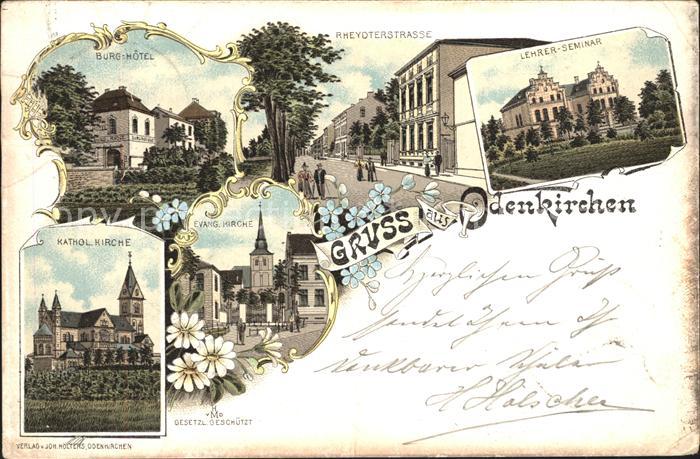 BURG-HÔTEL
RHEYDTERSTRASSE
LEHRER-SEMINAR
KATHOL. KIRCHE
EVANG. KIRCHE
GRUSS aus Odenkirchen
Herzlichen Gruß
sendet Ihnen Ihr
dankbarer Schüler
H Hölscher
GESETZL. GESCHÜTZT
VERLAG v. JOH. HOLTERS, ODENKIRCHEN